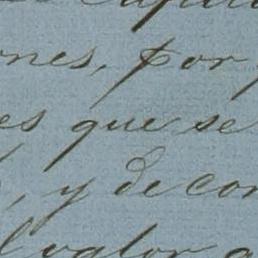 nes, por
es que se
, y de con
el valor